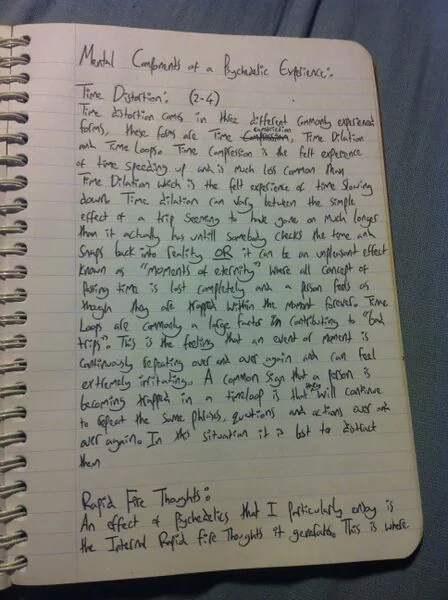 Mental Components of a Psychedelic Experience:
Time Distortion: (2-4)
Time distortion coms in three different commonly experienced
forms, these forms are Time Compression, Time Dilation
and Time Loops. Time Compression is the felt experience
of time speeding up and is much less common than
Time Dilation which is the felt experience of time slowing
down. Time dilation can vary between the simple
effect of a trip seeming to have gone on much longer
than it actually has untill somebody checks the time and
snaps back into reality OR it can be an unpleasent effect
known as "moments of eternity" where all concept of
passing time is lost completely and a person feels as
though they are trapped within the moment forever. Time
Loops are commonly a large factor in contributing to "bad
trips". This is the feeling that an event or moment is
continuously repeating over and over again and can feel
extremely irritating. A common sign that a person is
becoming trapped in a timeloop is that they will continue
to repeat the same phrases, questions and actions over and
over again. In this situation it is best to distract
them
Rapid Fire Thoughts:
An effect of Psychedelics that I particularly enjoy is
the Internal Rapid fire Thoughts it generates. This is where